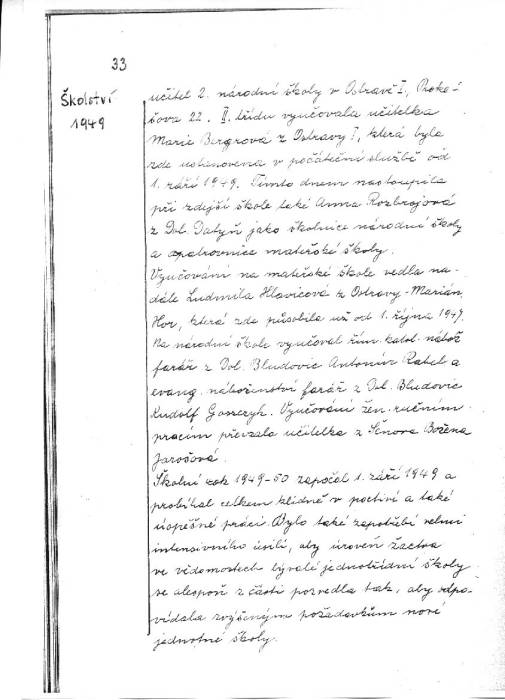 33
Školství
1949
učitel 2. národní školy v Ostravě I., Proke-
šova 22. II. třídu vyučovala učitelka
Marie Bergrová z Ostravy I, která byla
zde ustanovena v počáteční službě od
1. září 1949. Tímto dnem nastoupila
při zdejší škole také Anna Rozbrojová
z Dol. Datyň jako školnice národní školy
a opatrovnice mateřské školy.
Vyučování na mateřské škole vedla na-
dále Ludmila Hlavicová z Ostravy-Marián.
Hor, která zde působila už od 1. října 1947.
Na národní škole vyučoval řím. katol. nábož.
farář z Dol. Bludovic Antonín Ratel a
evang. náboženství farář z Dol. Bludovic
Rudolf Gaszczyk. Vyučování žen. ručním
pracím převzala učitelka z Šenova Božena
Jarošová.
Školní rok 1949-50 započal 1. září 1949 a
probíhal celkem klidně v poctivé a také
úspěšné práci. Bylo také zapotřebí velmi
intensivního úsilí, aby úroveň žactva
ve vědomostech bývalé jednotřídní školy
se alespoň z části pozvedla tak, aby odpo-
vídala zvýšeným požadavkům nové
jednotné školy.